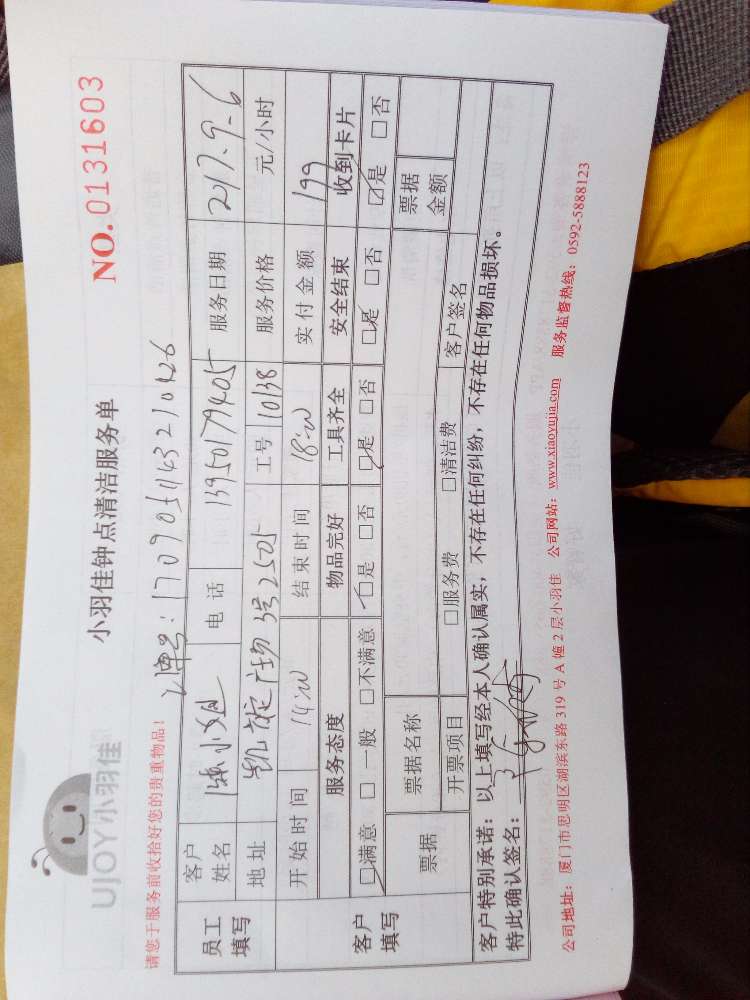 UJOY小羽佳
小羽佳钟点清洁服务单
NO. 0131603
请您于服务前收拾好您的贵重物品!
员工填写
客户姓名 小姐 电话 13950179405 服务日期 2017.9.6
地址 3号2505 工号 10138 服务价格 元/小时
开始时间 14:00 结束时间 18:00 实付金额 199
客户填写
服务态度 物品完好 工具齐全 安全结束 收到卡片
☑满意 □一般 □不满意 ☑是 □否 ☑是 □否 ☑是 □否 ☑是 □否
票据 票据名称 票据金额
开票项目 □服务费 □清洁费 客户签名
客户特别承诺：以上填写经本人确认属实，不存在任何纠纷，不存在任何物品损坏。
特此确认签名：
公司地址：厦门市思明区湖滨东路 319 号 A 幢 2 层小羽佳 公司网站：www.xiaoyujia.com 服务监督热线：0592-5888123